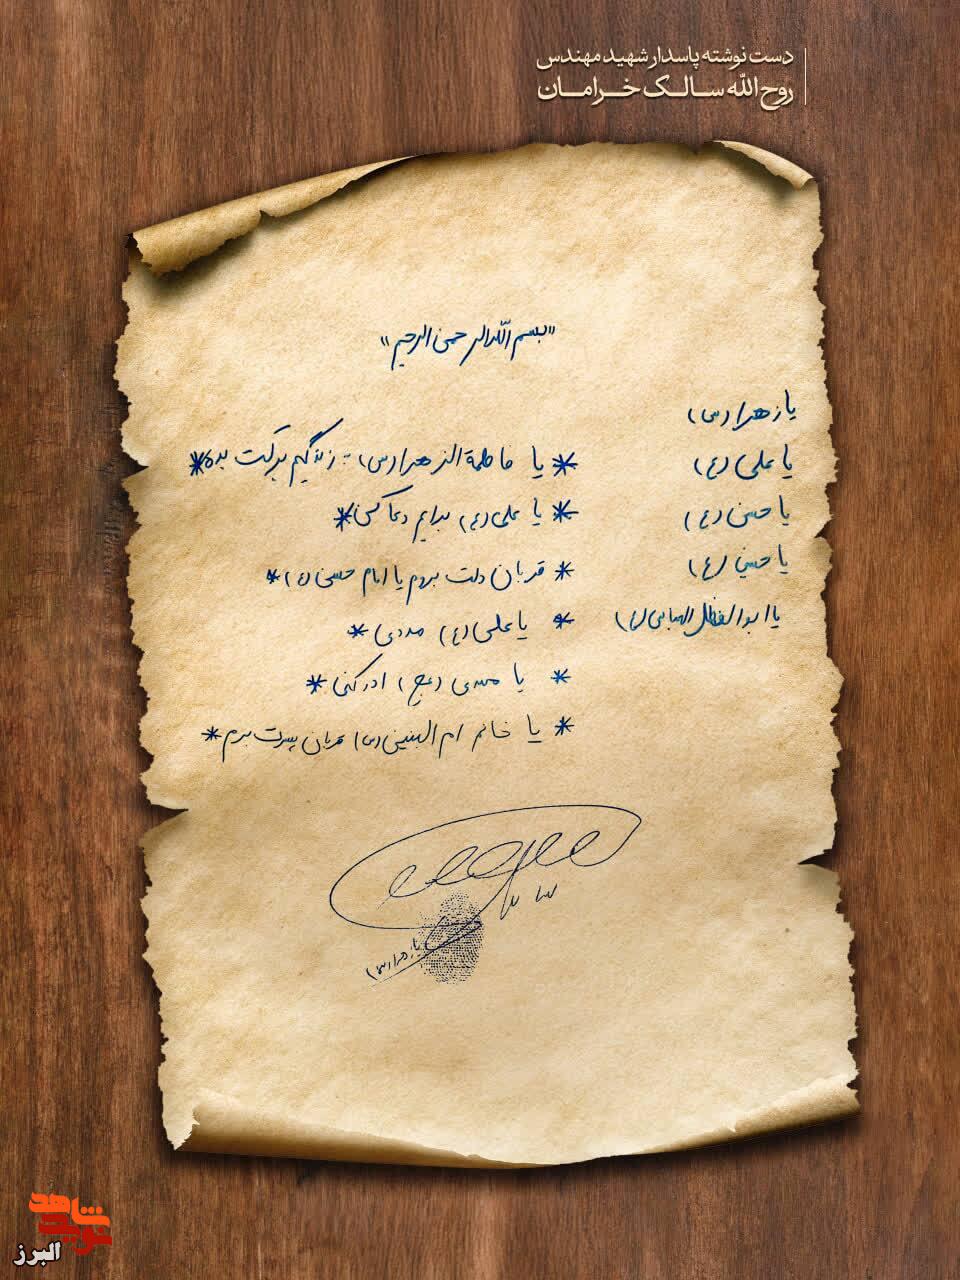 دست نوشته پاسدار شهید مهندس
روح الله سالک خرامان
«بسم الله الرحمن الرحیم»
یا زهرا (س)
یا علی (ع)
* یا فاطمة الزهرا (س) - زندگیم برکت بده *
یا حسن (ع)
* یا علی (ع) برایم دعا کن *
یا حسین (ع)
* قربان دلت بروم یا امام حسن (ع) *
یا ابوالفضل العباس (ع)
* یا علی (ع) مددی *
* یا مهدی (عج) ادرکنی *
* یا خانم ام البنین (س) قربان پسرت برم *
یا زهرا (س)
نوید شاهد
البرز